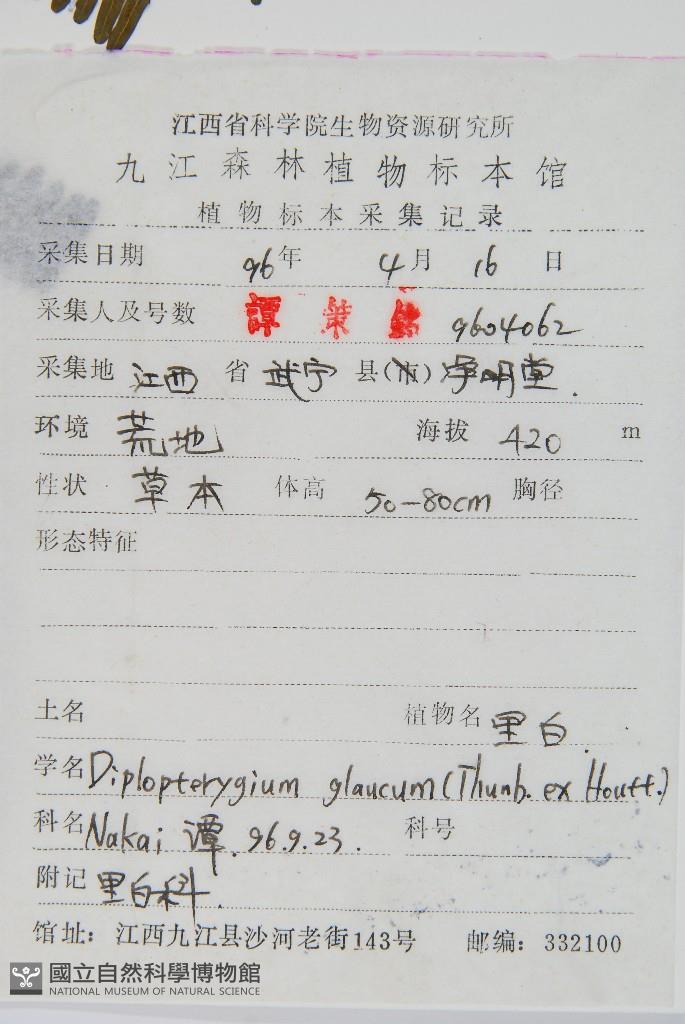 江西省科学院生物资源研究所
九江森林植物标本馆
植物标本采集记录
采集日期 96年 4月 16 日
采集人及号数 譚策銘 9604062
采集地 江西 省 武宁 县(市) 明堂.
环境 荒地 海拔 420 m
性状 草本 体高 50-80cm 胸径
形态特征
土名 植物名 里白.
学名 Diplopterygium glaucum (Thunb. ex Houtt.)
科名 Nakai 谭. 96.9.23. 科号
附记 里白科.
馆址: 江西九江县沙河老街143号 邮编: 332100
國立自然科學博物館
NATIONAL MUSEUM OF NATURAL SCIENCE